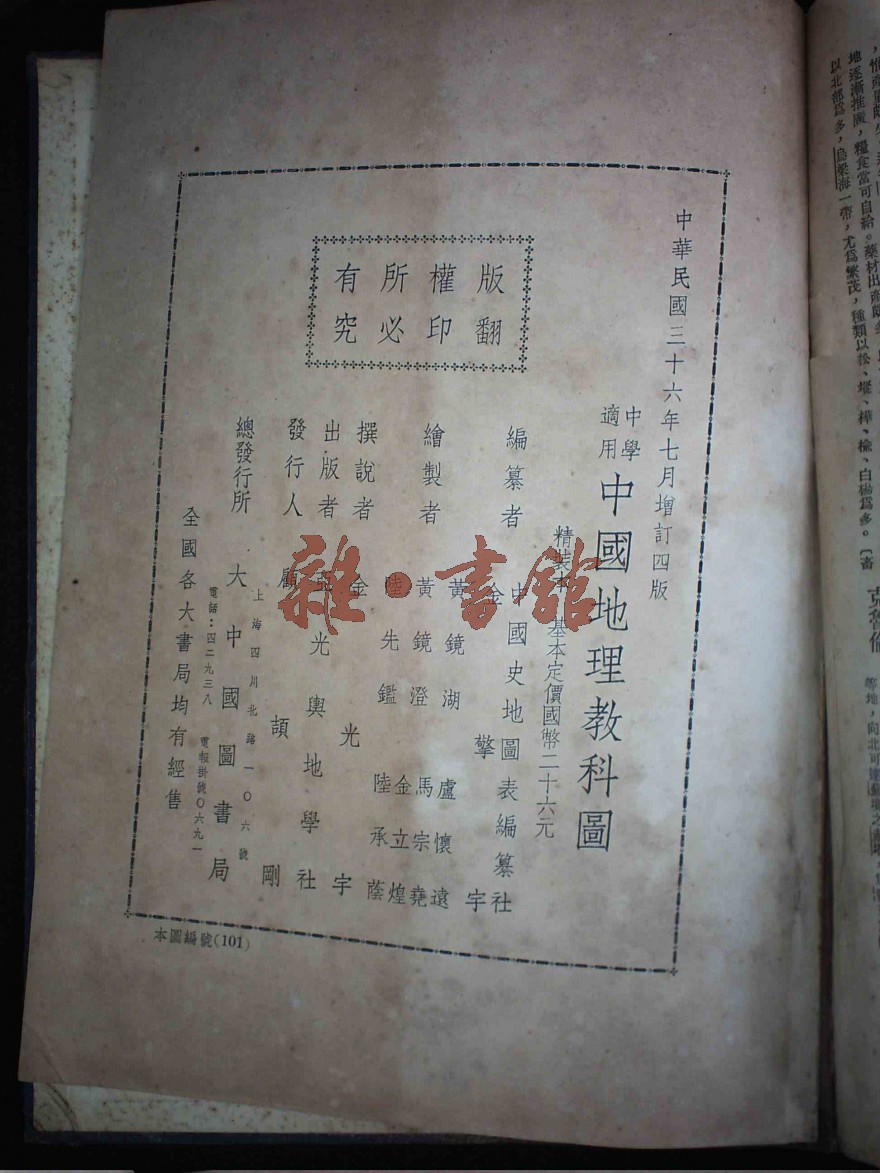 中華民國三十六年七月增訂四版
中學
適用
中國地理教科圖
精裝本 基本定價國幣二十六元
版權所有
翻印必究
編纂者
中國史地圖表編纂社
金擎宇
繪製者
黃鏡湖 盧懷遠
黃鏡澄 馬宗堯
陸先鑑 金立煌
陸承蔭
撰說者 金光宇
出版者 亞光輿地學社
發行人 顧頡剛
總發行所 大中國圖書局
上海四川北路一〇六號
電話:四二九三八 電報掛號〇六九一
全國各大書局均有經售
本圖編號(101)
雜·書館
地逐漸推廣,糧食當可自給。藥材出產
以北部爲多,烏梁海一帶,尤爲繁茂,種類以松、樅、樺、楡、白楊爲多。
克魯倫
等地,向北可